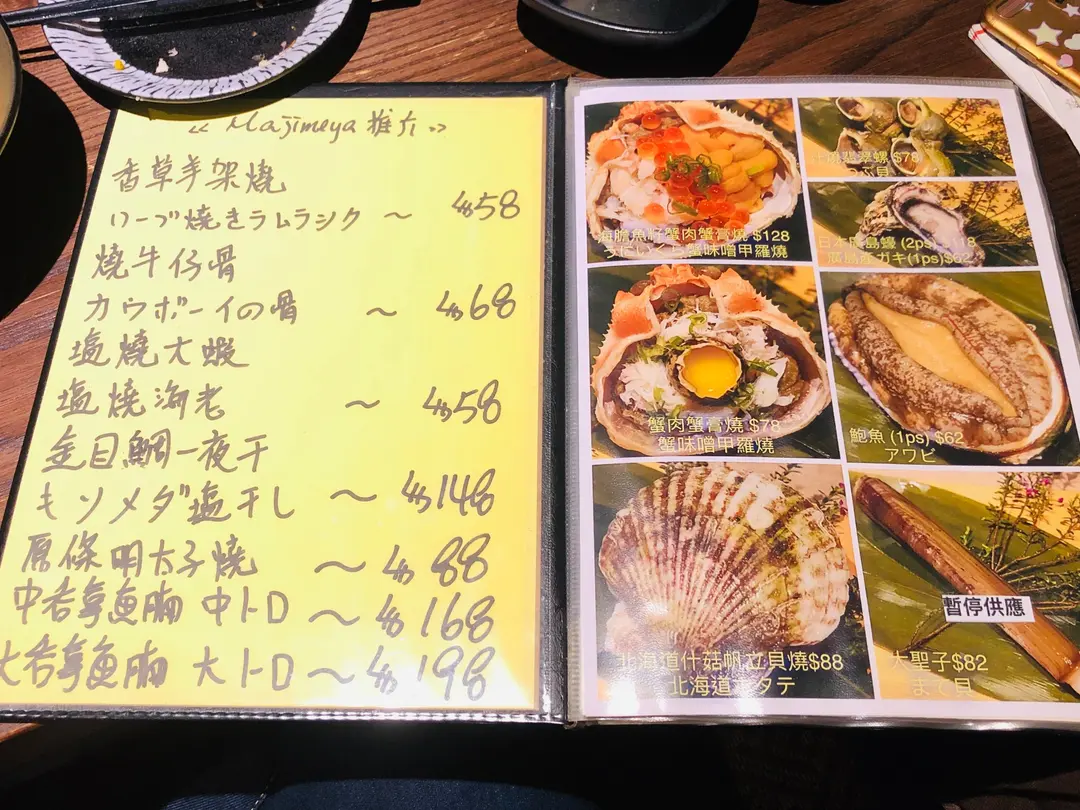 《 Majimeya 推介 》
香草羊架燒
ハーブ焼きラムラック ～ $58
燒牛仔骨
カウボーイの骨 ～ $68
塩燒大蝦
塩燒海老 ～ $58
金目鯛一夜干
キンメダ塩干し ～ $148
原條明太子燒 ～ $88
中吞拿魚腩 中トロ ～ $168
大吞拿魚腩 大トロ ～ $198
海膽魚籽蟹肉蟹膏燒 $128
うにいくら蟹味噌甲羅燒
翡翠螺 $78
つぶ貝
日本廣島蠔 (2ps) $118
廣島産ガキ(1ps)$62
蟹肉蟹膏燒 $78
蟹味噌甲羅燒
鮑魚 (1ps) $62
アワビ
北海道什菇帆立貝燒$88
北海道ホタテ
暫停供應
大聖子$82
まて貝